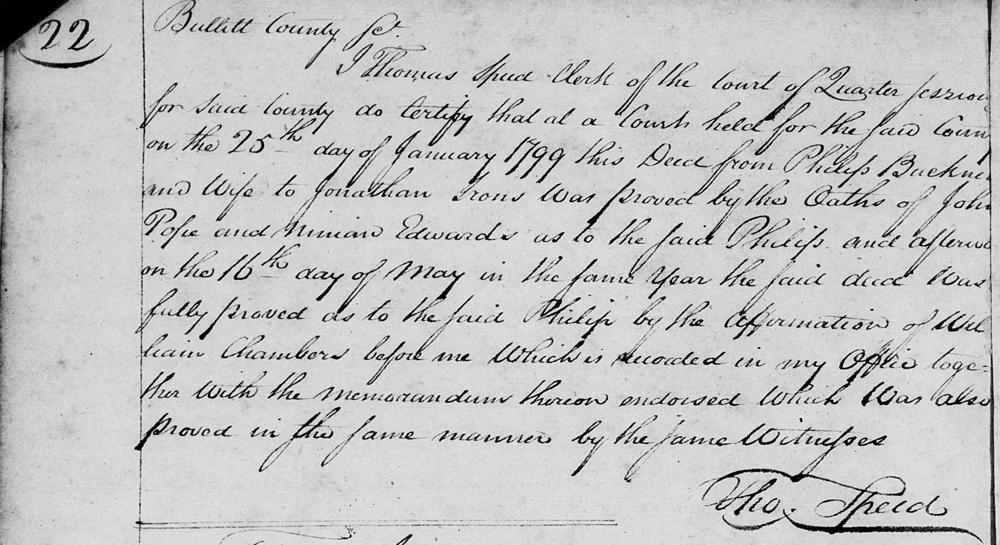 22
Bullitt County Sct.
I Thomas Speed Clerk of the Court of Quarter Session
for said County do Certify that at a Court held for the said Coun
on the 25th day of January 1799 this Deed from Philip Buckne
and Wife to Jonathan Irons was proved by the Oaths of John
Pope and Ninian Edwards as to the said Philip and afterw
on the 16th day of May in the same Year the said deed Was
fully proved as to the said Philip by the Affirmation of Wil
liam Chambers before me Which is recorded in my Office toge-
ther With the memorandum thereon endorsed Which Was also
proved in the same manner by the same Witnesses
Tho. Speed